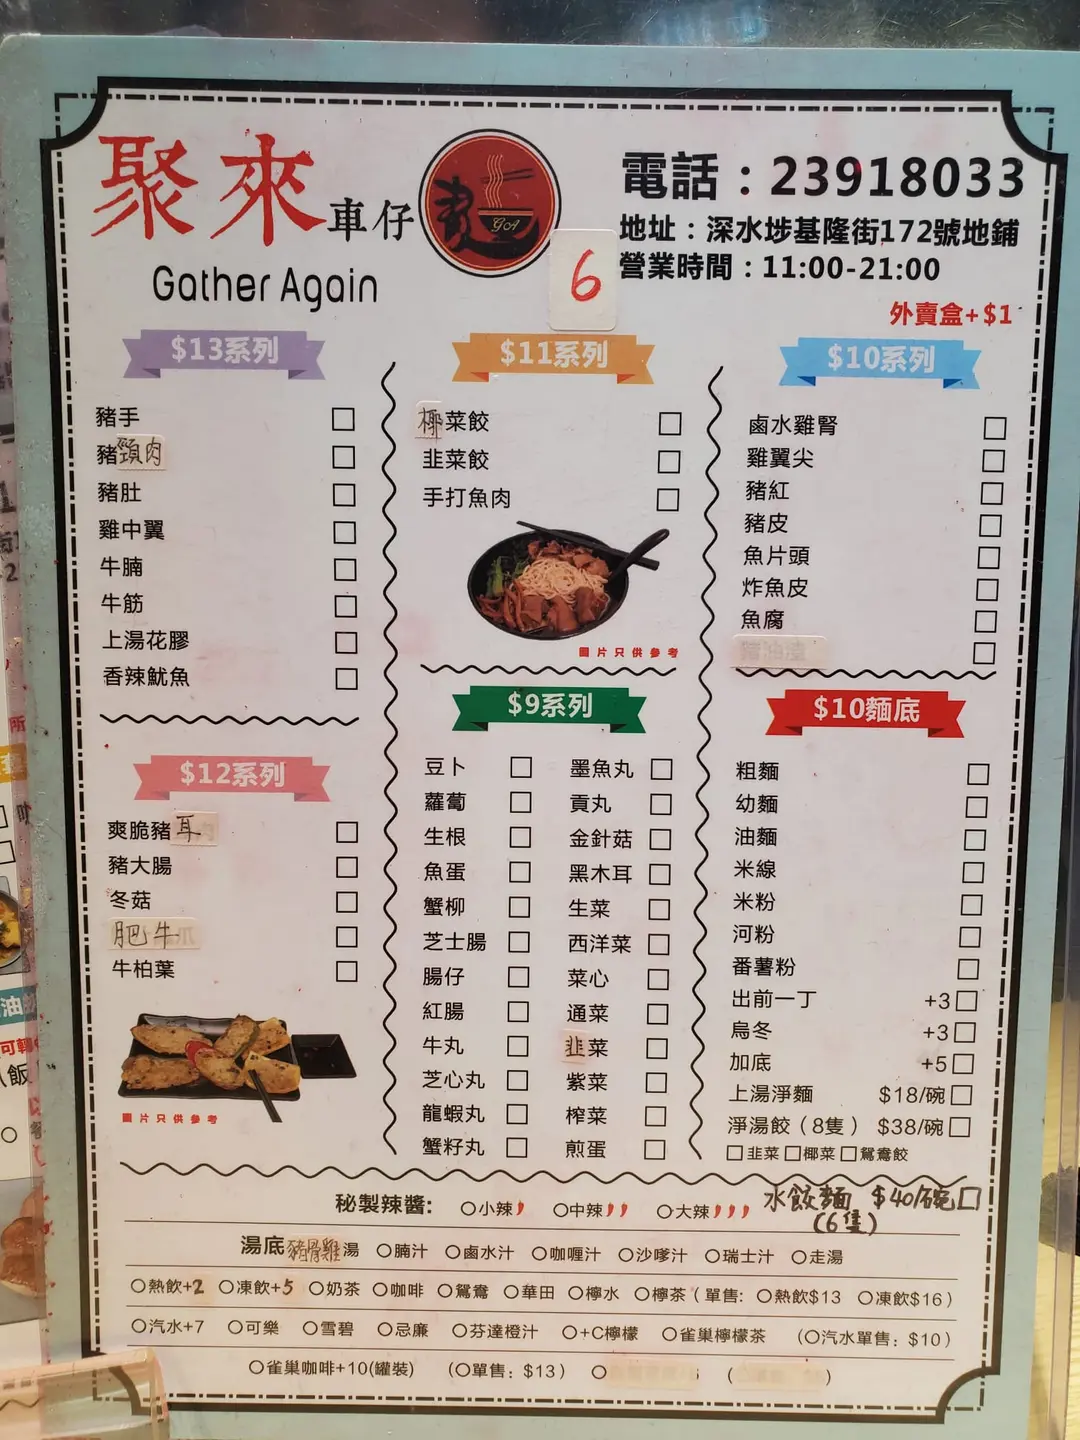 聚來車仔
Gather Again
GA
電話：23918033
地址：深水埗基隆街172號地鋪
營業時間：11:00-21:00
6
外賣盒+$1
$13系列
豬手
豬頸肉
豬肚
雞中翼
牛腩
牛筋
上湯花膠
香辣魷魚
$12系列
爽脆豬耳
豬大腸
冬菇
肥牛
牛柏葉
圖片只供參考
$11系列
椰菜餃
韭菜餃
手打魚肉
圖片只供參考
$9系列
豆卜
蘿蔔
生根
魚蛋
蟹柳
芝士腸
腸仔
紅腸
牛丸
芝心丸
龍蝦丸
蟹籽丸
墨魚丸
貢丸
金針菇
黑木耳
生菜
西洋菜
菜心
通菜
韭菜
紫菜
榨菜
煎蛋
$10系列
鹵水雞腎
雞翼尖
豬紅
豬皮
魚片頭
炸魚皮
魚腐
$10麵底
粗麵
幼麵
油麵
米線
米粉
河粉
番薯粉
出前一丁 +3
烏冬 +3
加底 +5
上湯淨麵 $18/碗
淨湯餃（8隻） $38/碗
韭菜 椰菜 鴛鴦餃
水餃麵 $40/碗
(6隻)
秘製辣醬: 小辣 中辣 大辣
湯底 豬骨雞湯 腩汁 鹵水汁 咖喱汁 沙嗲汁 瑞士汁 走湯
熱飲+2 凍飲+5 奶茶 咖啡 鴛鴦 華田 檸水 檸茶（單售: 熱飲$13 凍飲$16）
汽水+7 可樂 雪碧 忌廉 芬達橙汁 +C檸檬 雀巢檸檬茶 （汽水單售：$10）
雀巢咖啡+10(罐裝) （單售：$13）